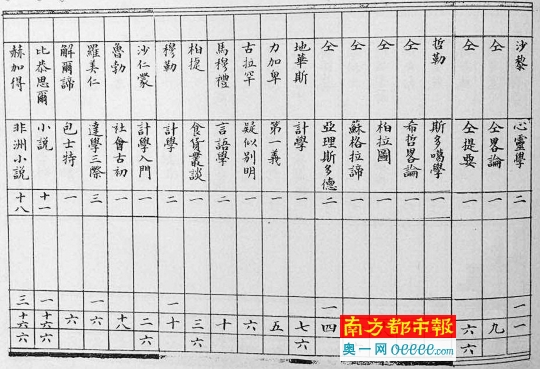 沙黎 心靈學 二 一 一
仝 仝畧論 一 九
仝 仝提要 一 六 六
哲勒 斯多噶學 一
仝 希哲畧論 一
仝 柏拉圖 一
仝 蘇格拉諦 一
仝 亞理斯多德 二 一 四
地華斯 計學 一 七 六
力加卑 第一義 一 五
古拉罕 疑似別明 一 六
馬穆禮 言語學 二 十
柏捷 食貨叢談 一 三 六
穆勒 計學 二 一 十
沙仁蒙 計學入門 一 二 六
魯勃 社會古初 一 十八
羅美仁 達學三際 三 一 六 六
解爾諦 包士特 一 六
比恭思爾 小説 十一 一 十六 六
赫加得 非洲小説 十八 三 十六 六
南方都市報
奥一网 oeeee.com